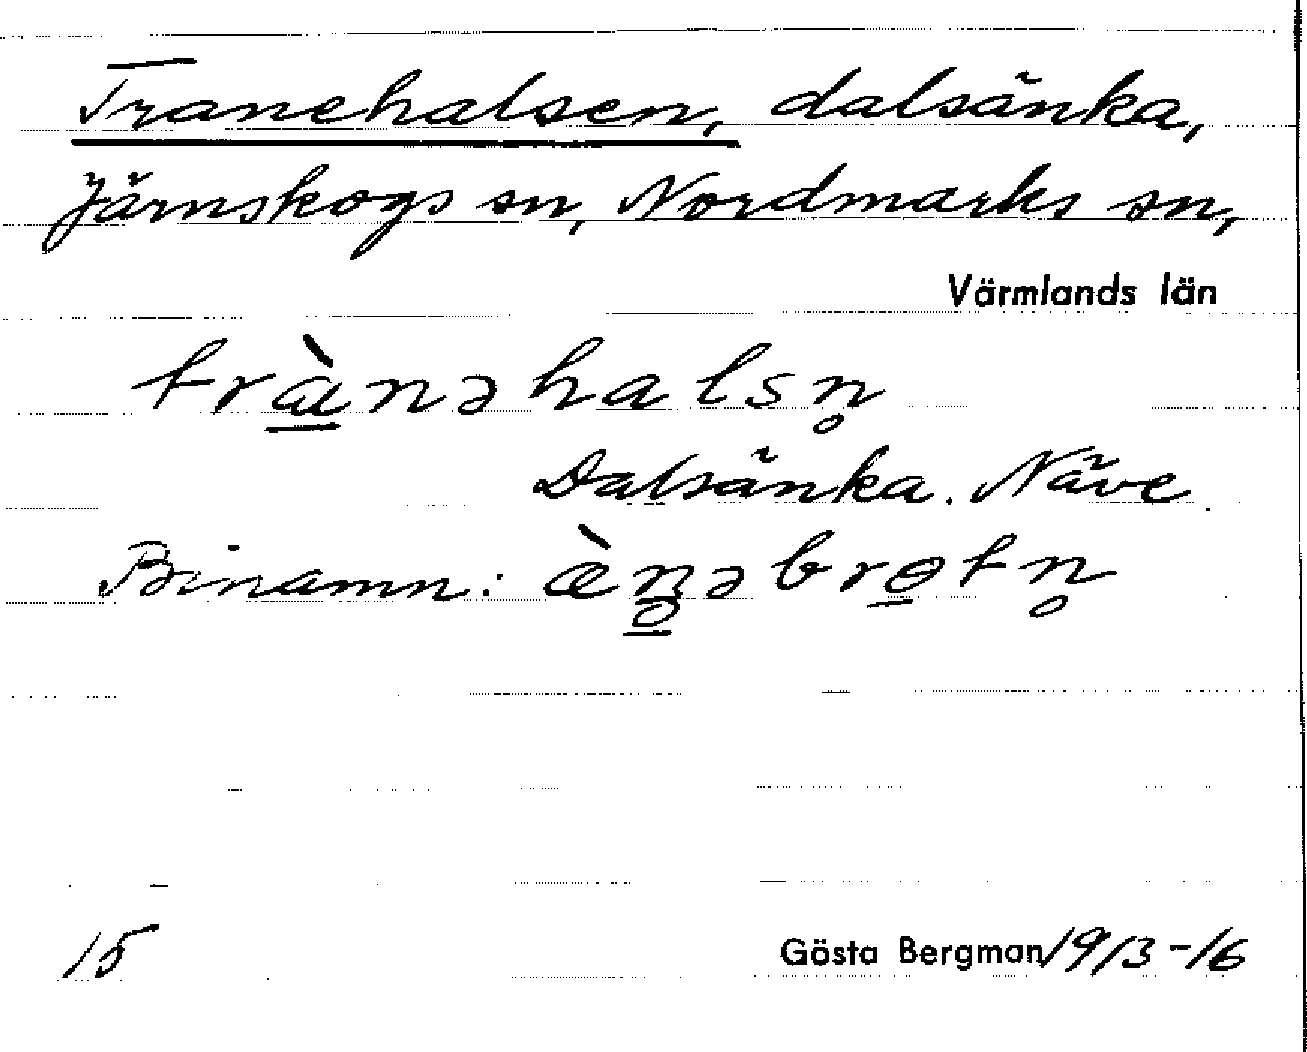 Tranehalsen, dalsänka,
Järnskogs sn, Nordmarks sn,
Värmlands län
trà̱nəhalsn̥
Dalsänka. Näve.
Binamn: æ̀n̥̱əbro̱tn̥
15 Gösta Bergman 1913-16